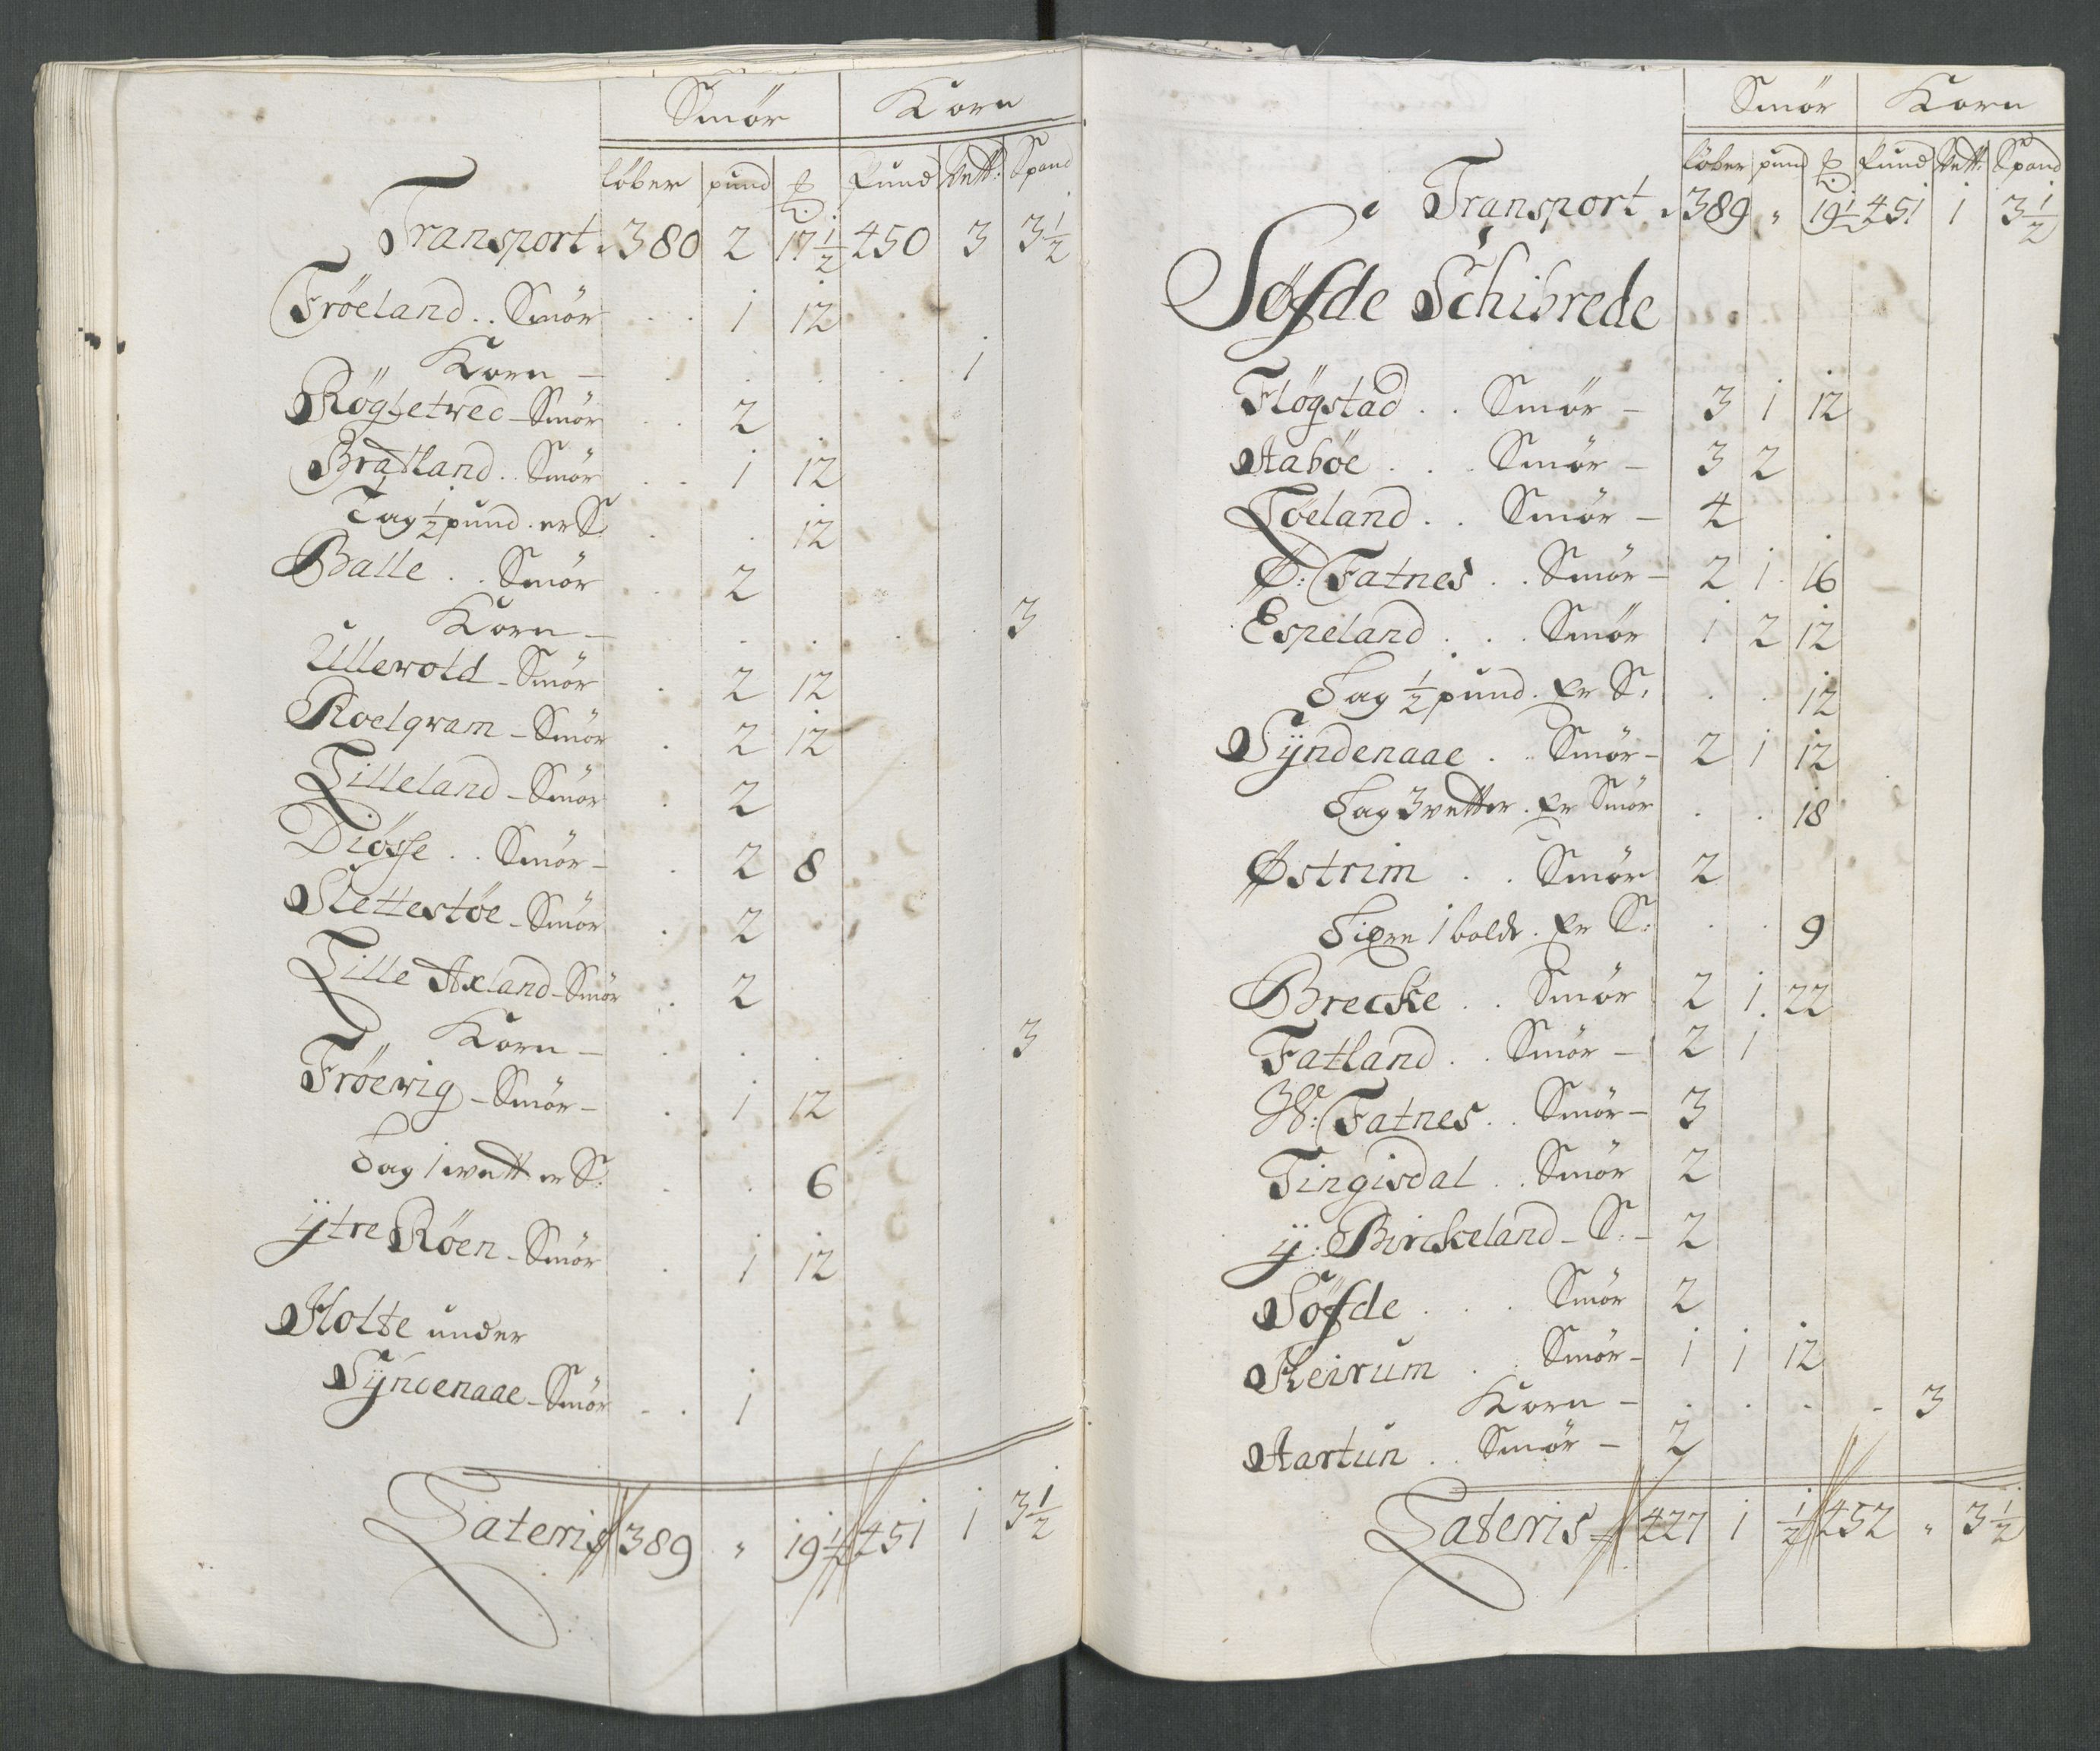 Smör Korn
löber pund ℔ Pund Vett: Spand
Transport. 380 2 17½ 450 3 3½
Fröeland .. Smör 1 12
Korn – 1
Rögletved – Smör 2
Bratland .. Smör 1 12
Tag ½ pund. er S. 12
Balle .. Smör 2
Korn – 3
Ullevold – Smör 2 12
Roelqvam – Smör 2 12
Lilleland – Smör 2
Diösse .. Smör – 2 8
Slettestöe – Smör 2
Lille Axland – Smör 2
Korn – 3
Fröevig – Smör – 1 12
Tag 1 vett er S. 6
ÿtre Röen – Smör 1 12
Holte under
Sÿndenaae – Smör 1
Lateris 389 " 19½ 451 1 3½
Smör Korn
löber pund ℔ Pund Vett: Spand
Transport. 389 " 19½ 451 1 3½
Söfde Schibrede
Flögstad .. Smör – 3 1 12
Aaböe ... Smör – 3 2
Löeland .. Smör – 4
Ø: Fatnes .. Smör – 2 1 16
Espeland ... Smör 1 2 12
Tag ½ pund. Er S. 12
Sÿndenaae .. Smör – 2 1 12
Tag 3 vetter. Er Smör 18
Østrim .. Smör 2
1 bolt. Er S: 9
Brecke .. Smör 2 1 22
Fatland .. Smör – 2 1
W: Fatnes .. Smör – 3
Tingisdal .. Smör 2
ÿ: Birckeland – S: – 2
Söfde ... Smör 2
Keirum .. Smör – 1 1 12
Korn – 3
Aartun .. Smör – 2
Lateris 427 1 ½ 452 " 3½